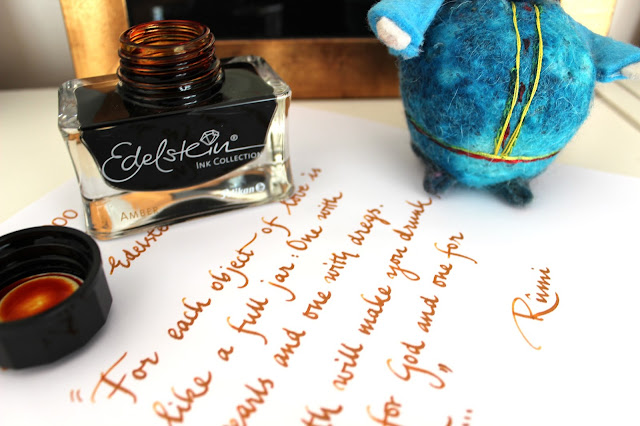 Edelstein®
INK COLLECTION
Pelikan
AMBER
00
Edelste
"For each object of love is
like a full jar: One with
earls and one with dregs.
th will make you drunk
for God and one for
"
...
Rûmi